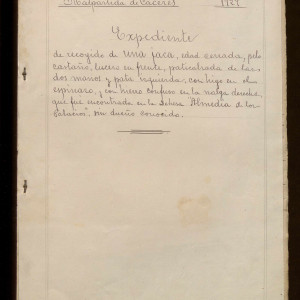 Malpartida de Cáceres 1927
Expediente
de recogida de una jaca, edad cerrada, pelo
castaño, lucero en frente, paticalzada de las
dos manos y pata izquierda, con higo en el
espinazo, y con hierro confuso en la nalga derecha,
que fue encontrada en la dehesa Almedia de los
Palacios, sin dueño conocido.